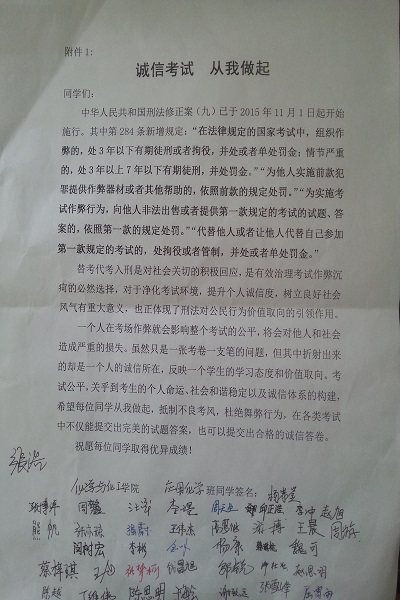 附件1：
诚信考试　从我做起
同学们：
中华人民共和国刑法修正案（九）已于 2015 年 11 月 1 日起开始
施行。其中第 284 条新增规定：“在法律规定的国家考试中，组织作
弊的，处 3 年以下有期徒刑或者拘役，并处或者单处罚金；情节严重
的，处 3 年以上 7 年以下有期徒刑，并处罚金。”“为他人实施前款犯
罪提供作弊器材或者其他帮助的，依照前款的规定处罚。”“为实施考
试作弊行为，向他人非法出售或者提供第一款规定的考试的试题、答
案的，依照第一款的规定处罚。”“代替他人或者让他人代替自己参加
第一款规定的考试的，处拘役或者管制，并处或者单处罚金。”
替考代考入刑是对社会关切的积极回应，是有效治理考试作弊沉
疴的必然选择，对于净化考试环境，提升个人诚信度，树立良好社会
风气有重大意义，也正体现了刑法对公民行为价值取向的引领作用。
一个人在考场作弊就会影响整个考试的公平，将会对他人和社会
造成严重的损失。虽然只是一张考卷一支笔的问题，但其中折射出来
的却是一个人的诚信所在，反映一个学生的学习态度和价值取向。考
试公平，关乎到考生的个人命运、社会和谐稳定以及诚信体系的构建，
希望每位同学从我做起，抵制不良考风，杜绝舞弊行为，在各类考试
中不仅能提交出完美的试题答案，也可以提交出合格的诚信答卷。
祝愿每位同学取得优异成绩！
张浩
化学与化工学院 应用化学 班同学签名：
熊帆 王晨
闵时宏 杨康 魏可
陈超 陈思明